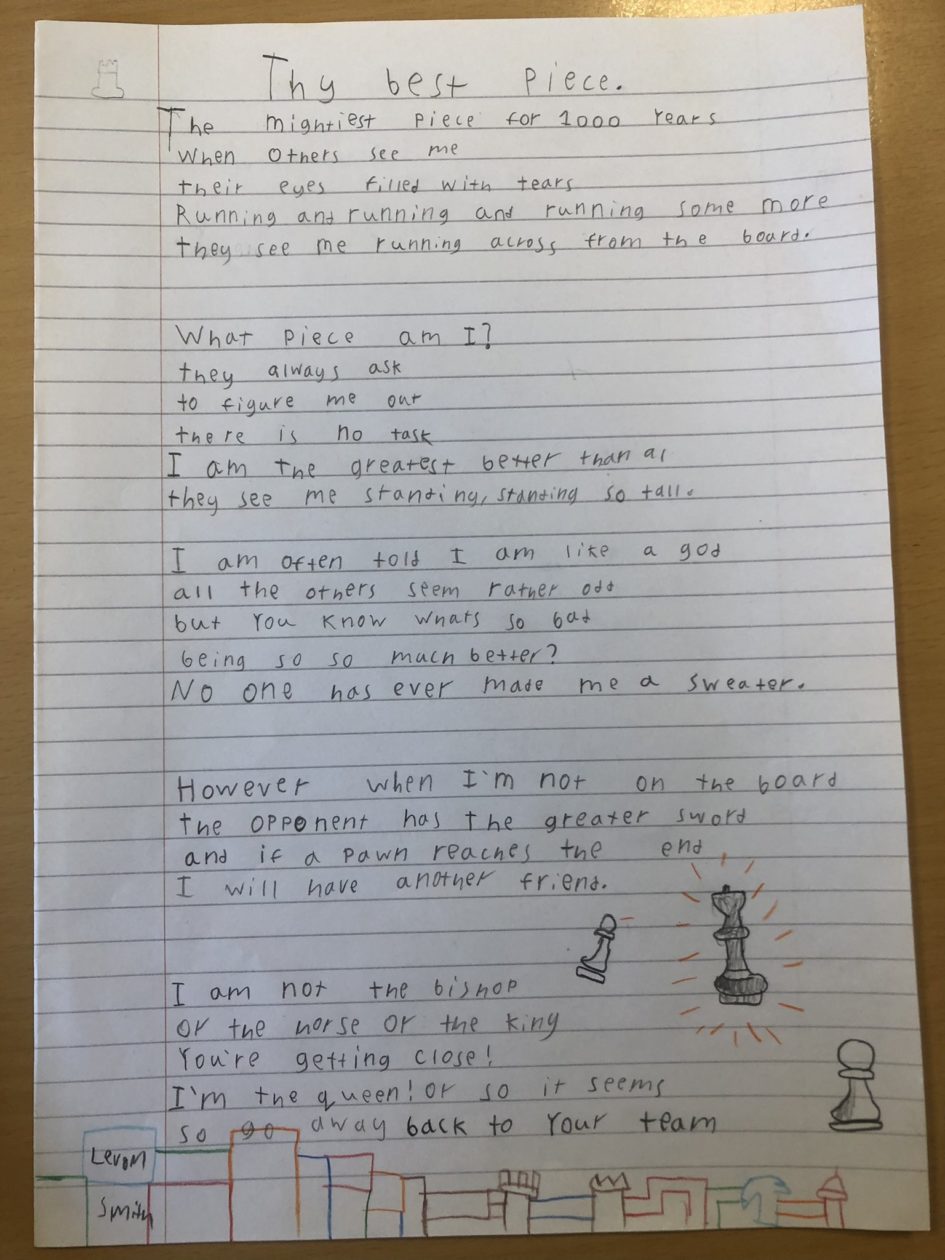 Thy best piece.
The mightiest piece for 1000 years
When others see me
their eyes filled with tears
Running and running and running some more
they see me running across from the board.
What piece am I?
they always ask
to figure me out
there is no task
I am the greatest better than al
they see me standing, standing so tall.
I am often told I am like a god
all the others seem rather odd
but you know whats so bad
being so so much better?
No one has ever made me a sweater.
However when I'm not on the board
the opponent has the greater sword
and if a pawn reaches the end
I will have another friend.
I am not the bishop
or the horse or the king
You're getting close!
I'm the queen! or so it seems
so go away back to your team
Smith